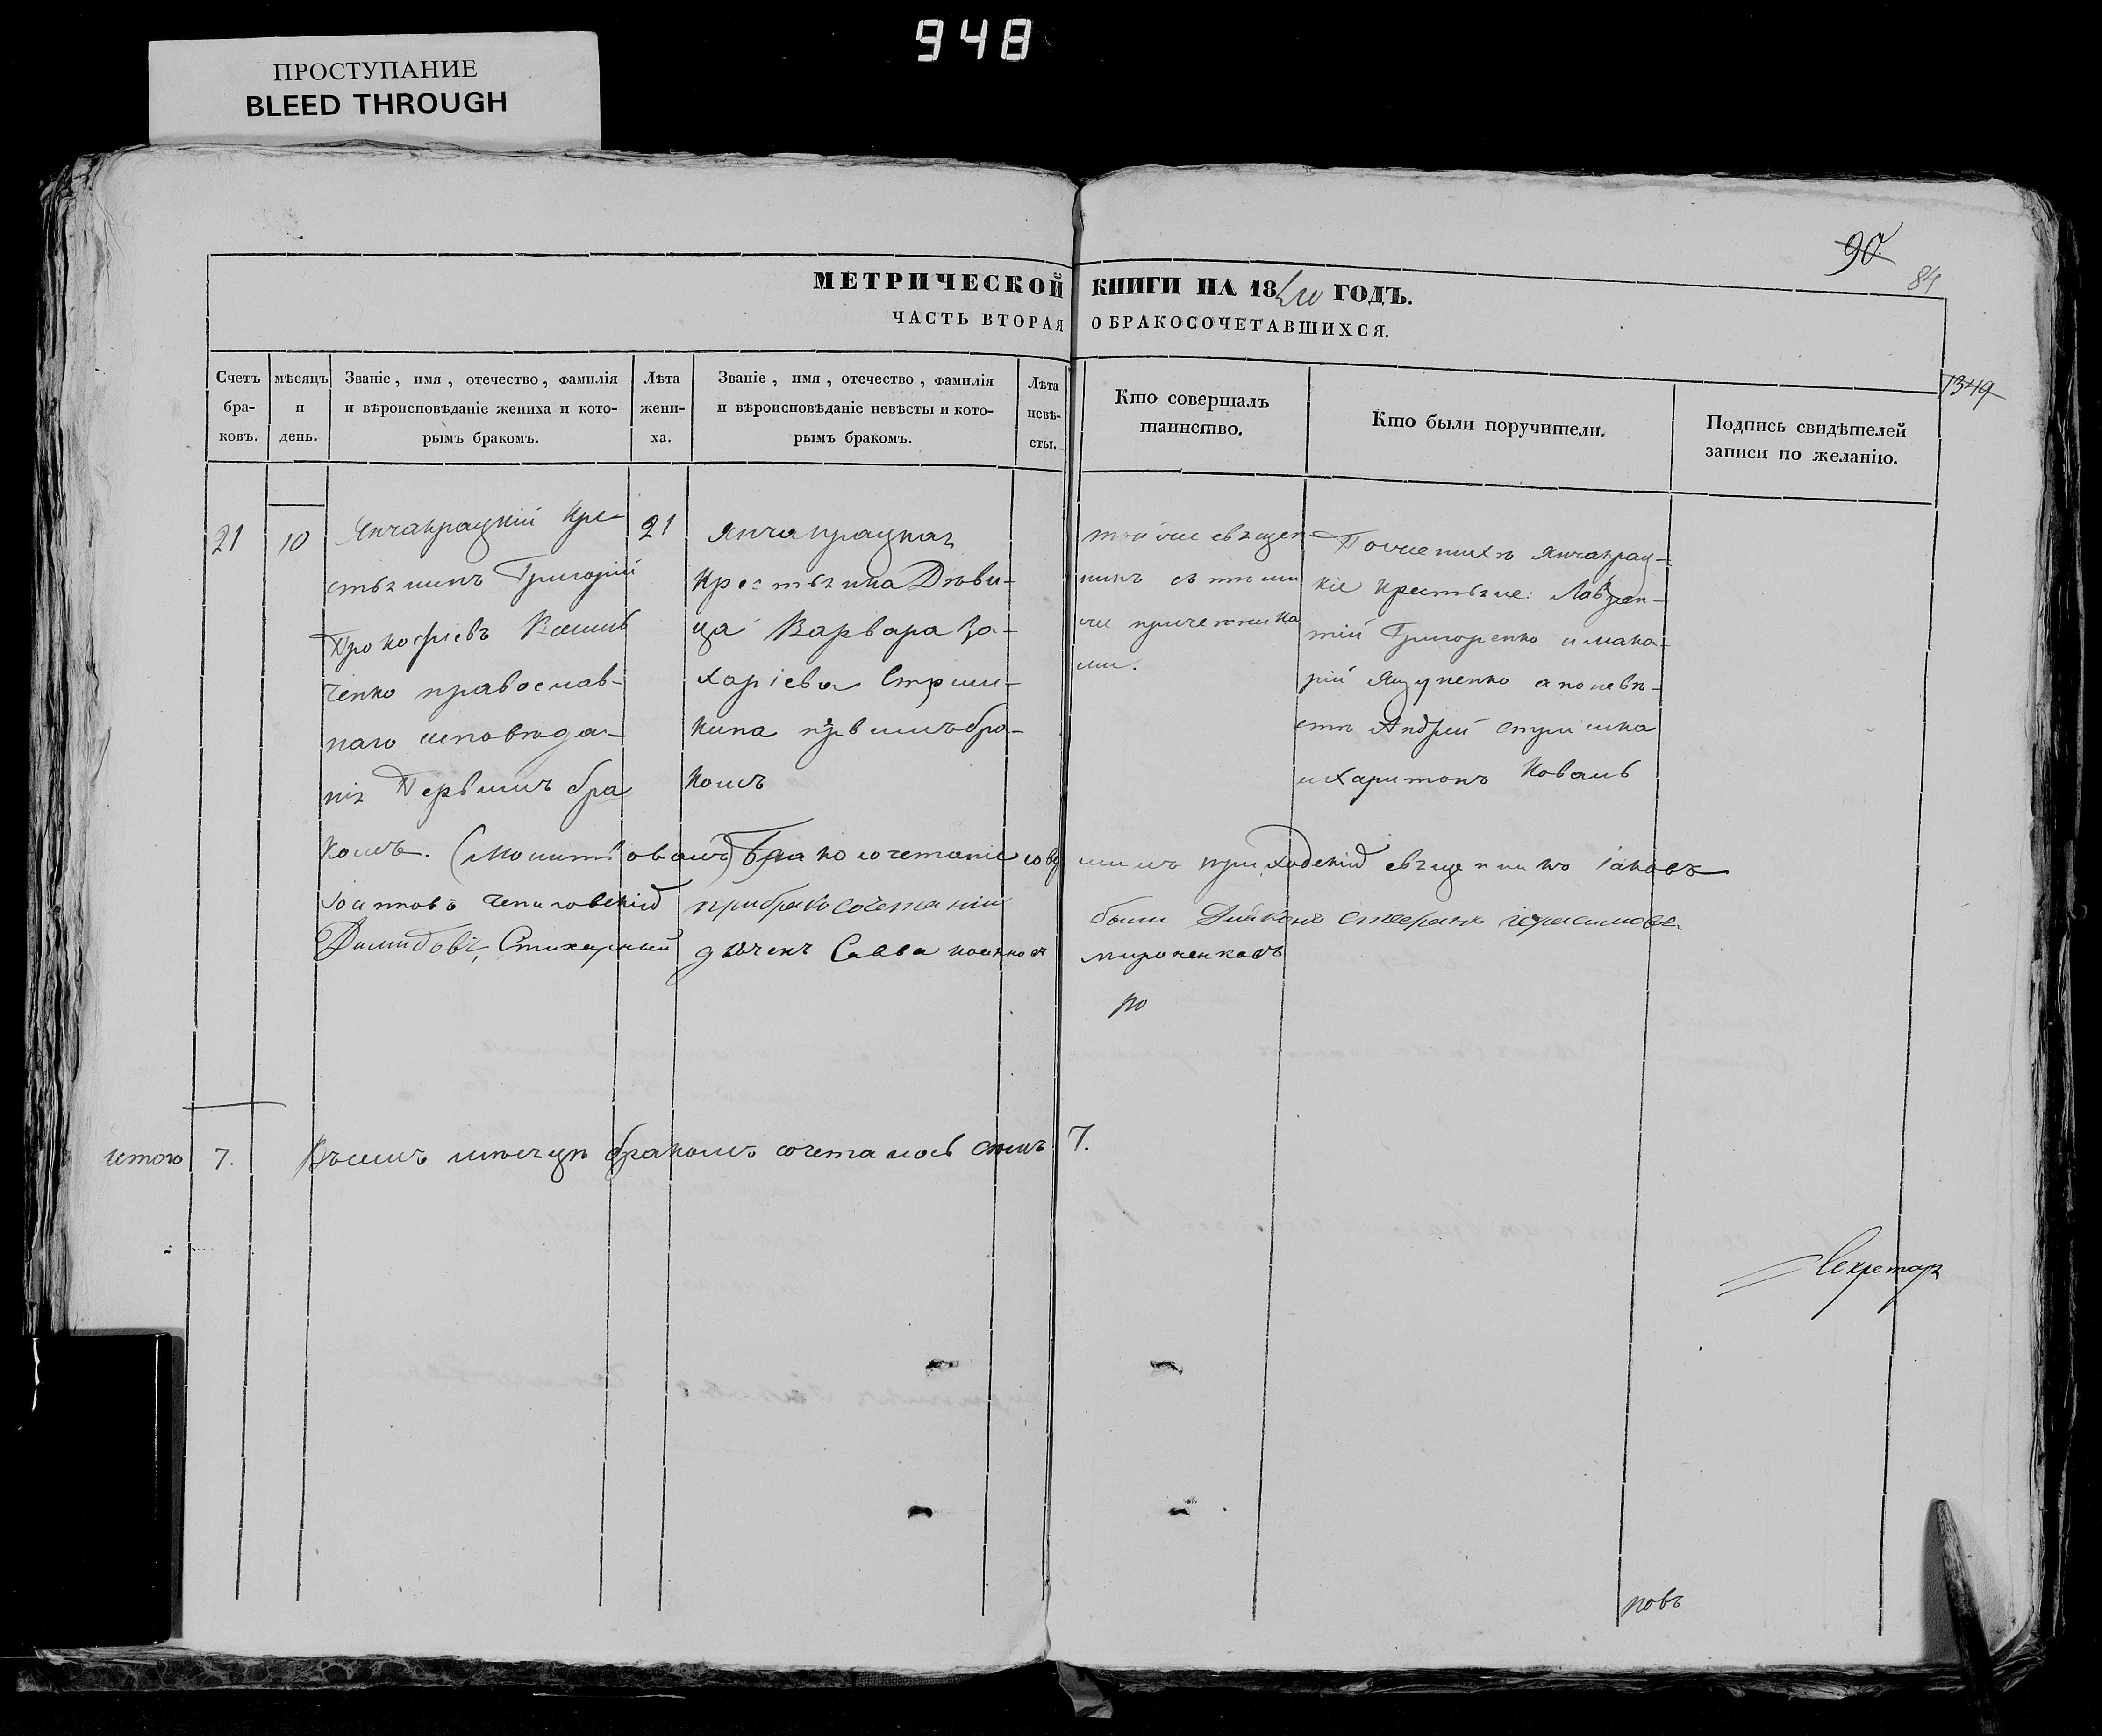 948
ПРОСТУПАНИЕ
BLEED THROUGH
90.
84
1349
МЕТРИЧЕСКОЙ КНИГИ НА 1840 ГОДЪ.
ЧАСТЬ ВТОРАЯ О БРАКОСОЧЕТАВШИХСЯ.
Счетъ
бра-
ковъ.
мѣсяцъ
и
день.
Званіе, имя, отечество, фамилія
и вѣроисповѣданіе жениха и кото-
рымъ бракомъ.
Лѣта
жени-
ха.
Званіе, имя, отечество, фамилія
и вѣроисповѣданіе невѣсты и кото-
рымъ бракомъ.
Лѣта
невѣ-
сты.
Кто совершалъ
таинство.
Кто были поручители.
Подпись свидѣтелей
записи по желанію.
21
10
Янчакрацкій Кре-
стьянинъ Григорій
Прокофіевъ
ченко православ-
наго исповѣда-
нія Первымъ бра
комъ.
21
Янчакрацкая
Крестьянка Дѣви-
ца Варвара За-
харіева
первымъ бра-
комъ
тойже священ-
никъ съ тѣми
же причетника
ми.
По женихѣ Янчакрац-
кіе крестьяне: Лаврен-
тій Григоренко и Мака-
рій Яцученко а по невѣ-
стѣ Андрей
и Харитонъ Коваль
Бракосочетаніе совершилъ приходскій священникъ Іаковъ
Іоанновъ Чепиговскій при бракосочетаніи были Дияконъ Стефанъ Герасимовъ
Демидовъ, Стихарный дьячекъ Савва Іоанновъ Мироненковъ
ро
итого 7. Въ семъ мѣсяцѣ бракомъ сочеталось 7.
Секретарь
новъ